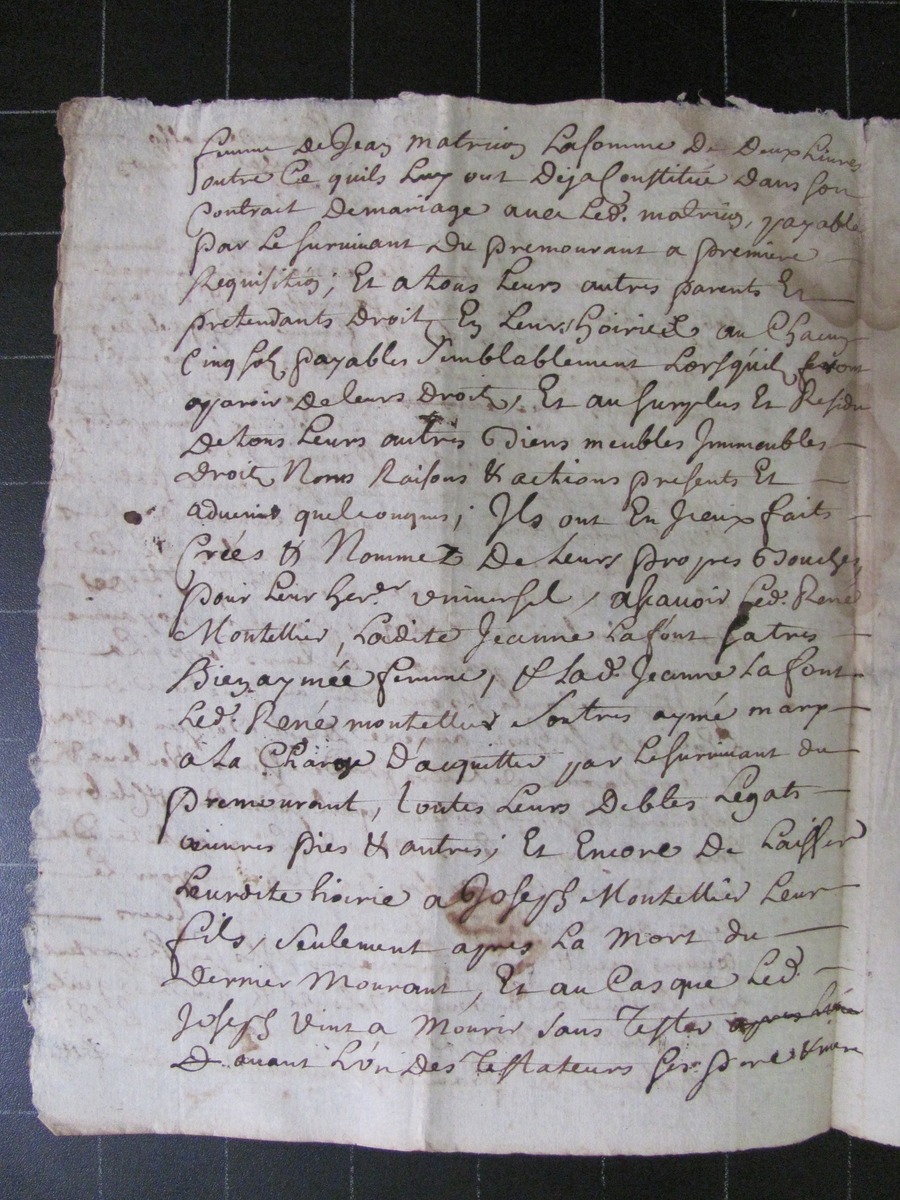 femme de Jean matrion La somme De Deux Livres
outre Ce quils Luy ont Deja Constitué dans son
Contrait de mariage avec Led. matrion, payable
par Le survivant Du premourant a premiere
Requisition; Et a tous Leurs autres parents Et
pretendants Droit En Leurs hoiries au Chacun
Cinq sols payables semblablement Lorsquils feront
aparoir de leurs Droits, Et au surplus Et Residu
De tous Leurs autres Biens meubles Jmmeubles
Droits Noms Raisons & actions presents Et
advenir quelconques; Ils ont En Jceux faits
Créés & Nommez De Leurs propres Bouches
pour Leur her.er universel, a scavoir Led. René
Montellier, Ladite Jeanne Lafont sa tres
Bien aymée femme, & Lad. Jeanne Lafont
Led. René montellier son tres aymé mary
a La Charge D'acquitter par Le survivant du
premourant, toutes Leurs Debtes Legats
œuvres pies & autres; Et Encore De Laisser
Leurdite hoirie a Joseph Montellier Leur
fils, seulement apres La mort du
Dernier Mourant, Et au Cas que Led.
Joseph vint a Mourir sans Tester
D. avant L'un Des Testateurs ses pere & mere